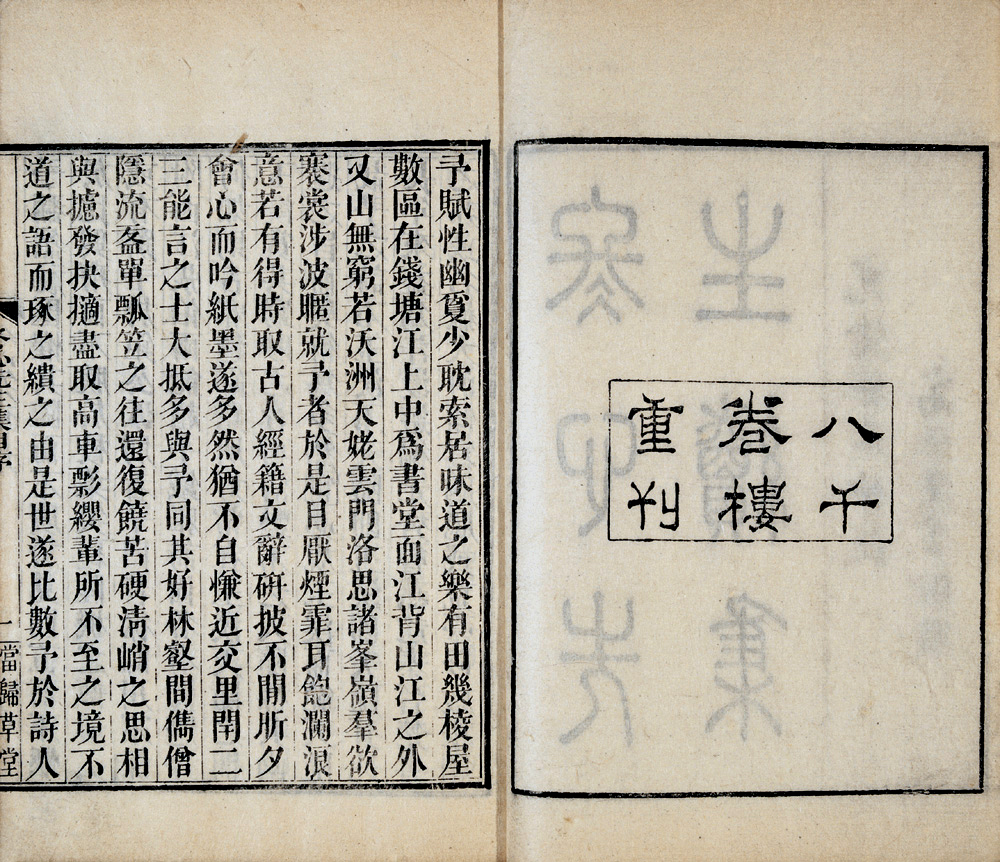 八千
卷樓
重刊
予賦性幽敻少耽索居味道之樂有田幾棱屋
數區在錢塘江上中爲書堂面江背山江之外
又山無窮若沃洲天姥雲門洛思諸峯嶺羣欲
褰裳涉波暱就予者於是目厭煙霏耳飽瀾浪
意若有得時取古人經籍文辭硏披不閒昕夕
會心而吟紙墨遂多然猶不自慊近交里閈二
三能言之士大抵多與予同其好林壑間儁僧
隱流盋單瓢笠之往還復饒苦硬淸峭之思相
與攄發抉擿盡取高車影纓輩所不至之境不
道之語而琢之繢之由是世遂比數予於詩人
先生集自序
一
當歸草堂